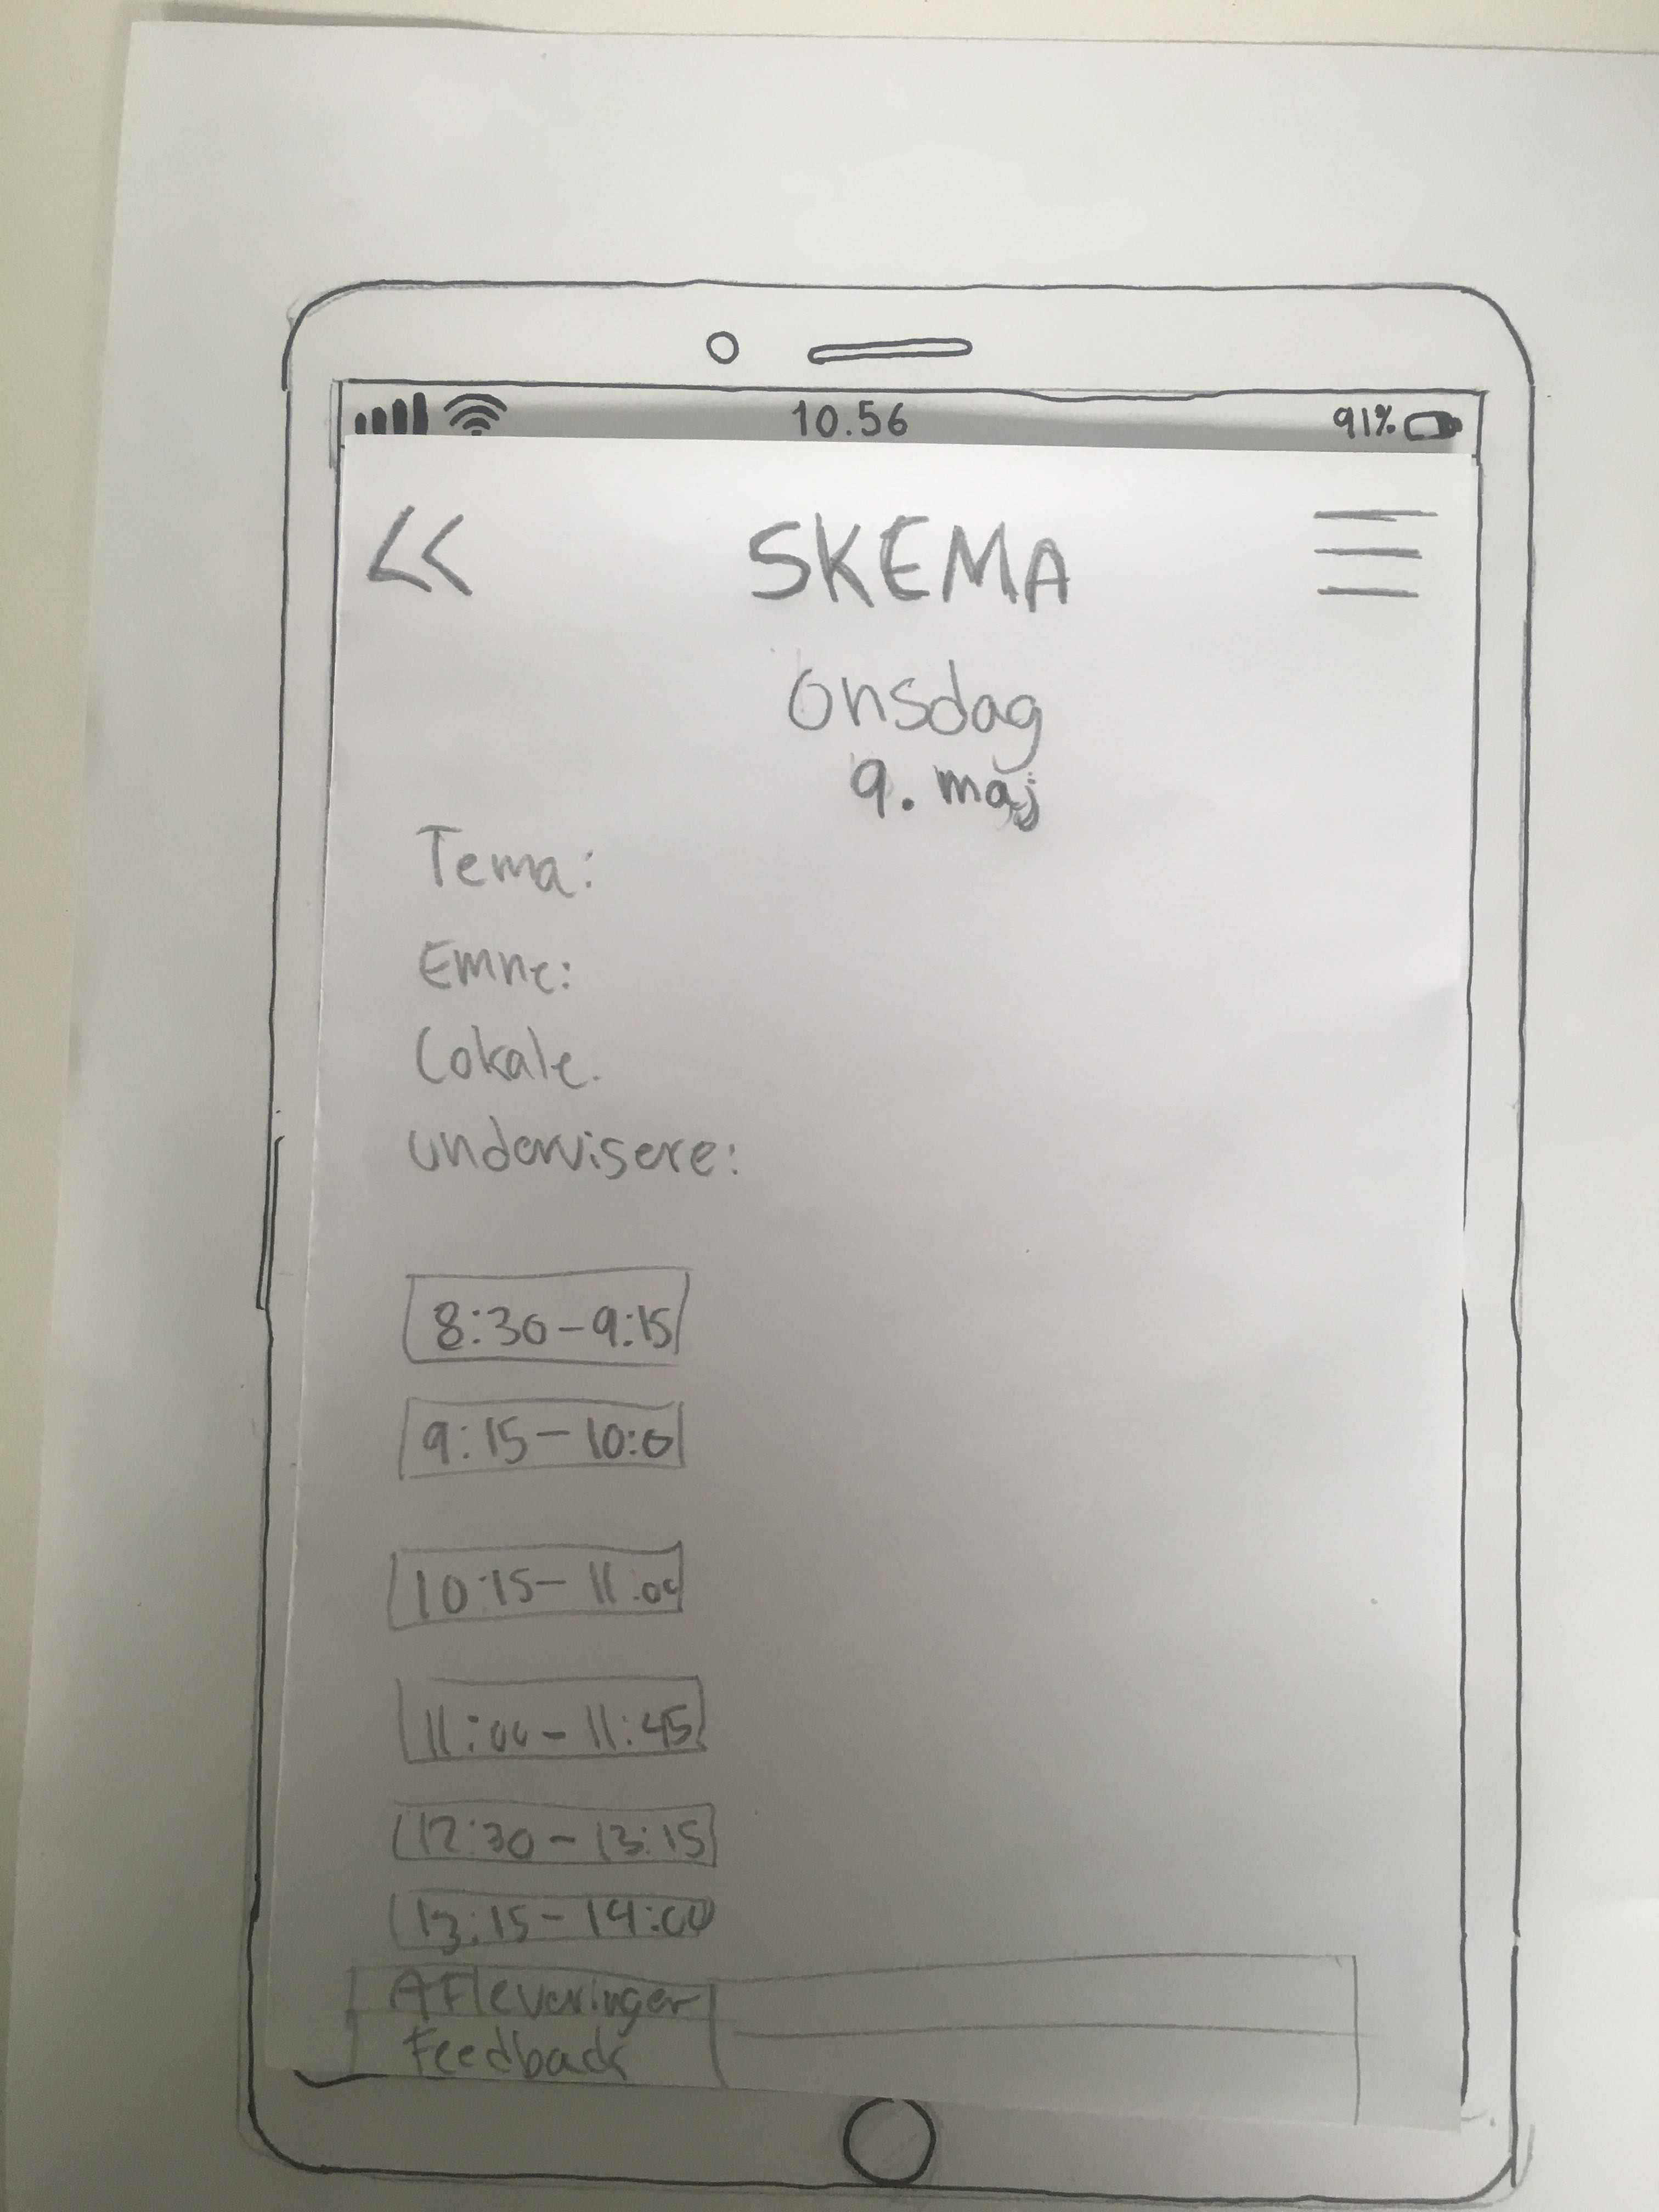 10.56 91%
<< SKEMA
Onsdag
9. maj
Tema:
Emne:
Lokale.
undervisere:
8:30-9:15
9:15-10:0
10:15-11:00
11:00-11:45
12:30-13:15
13:15-14:00
Afleveringer
Feedback